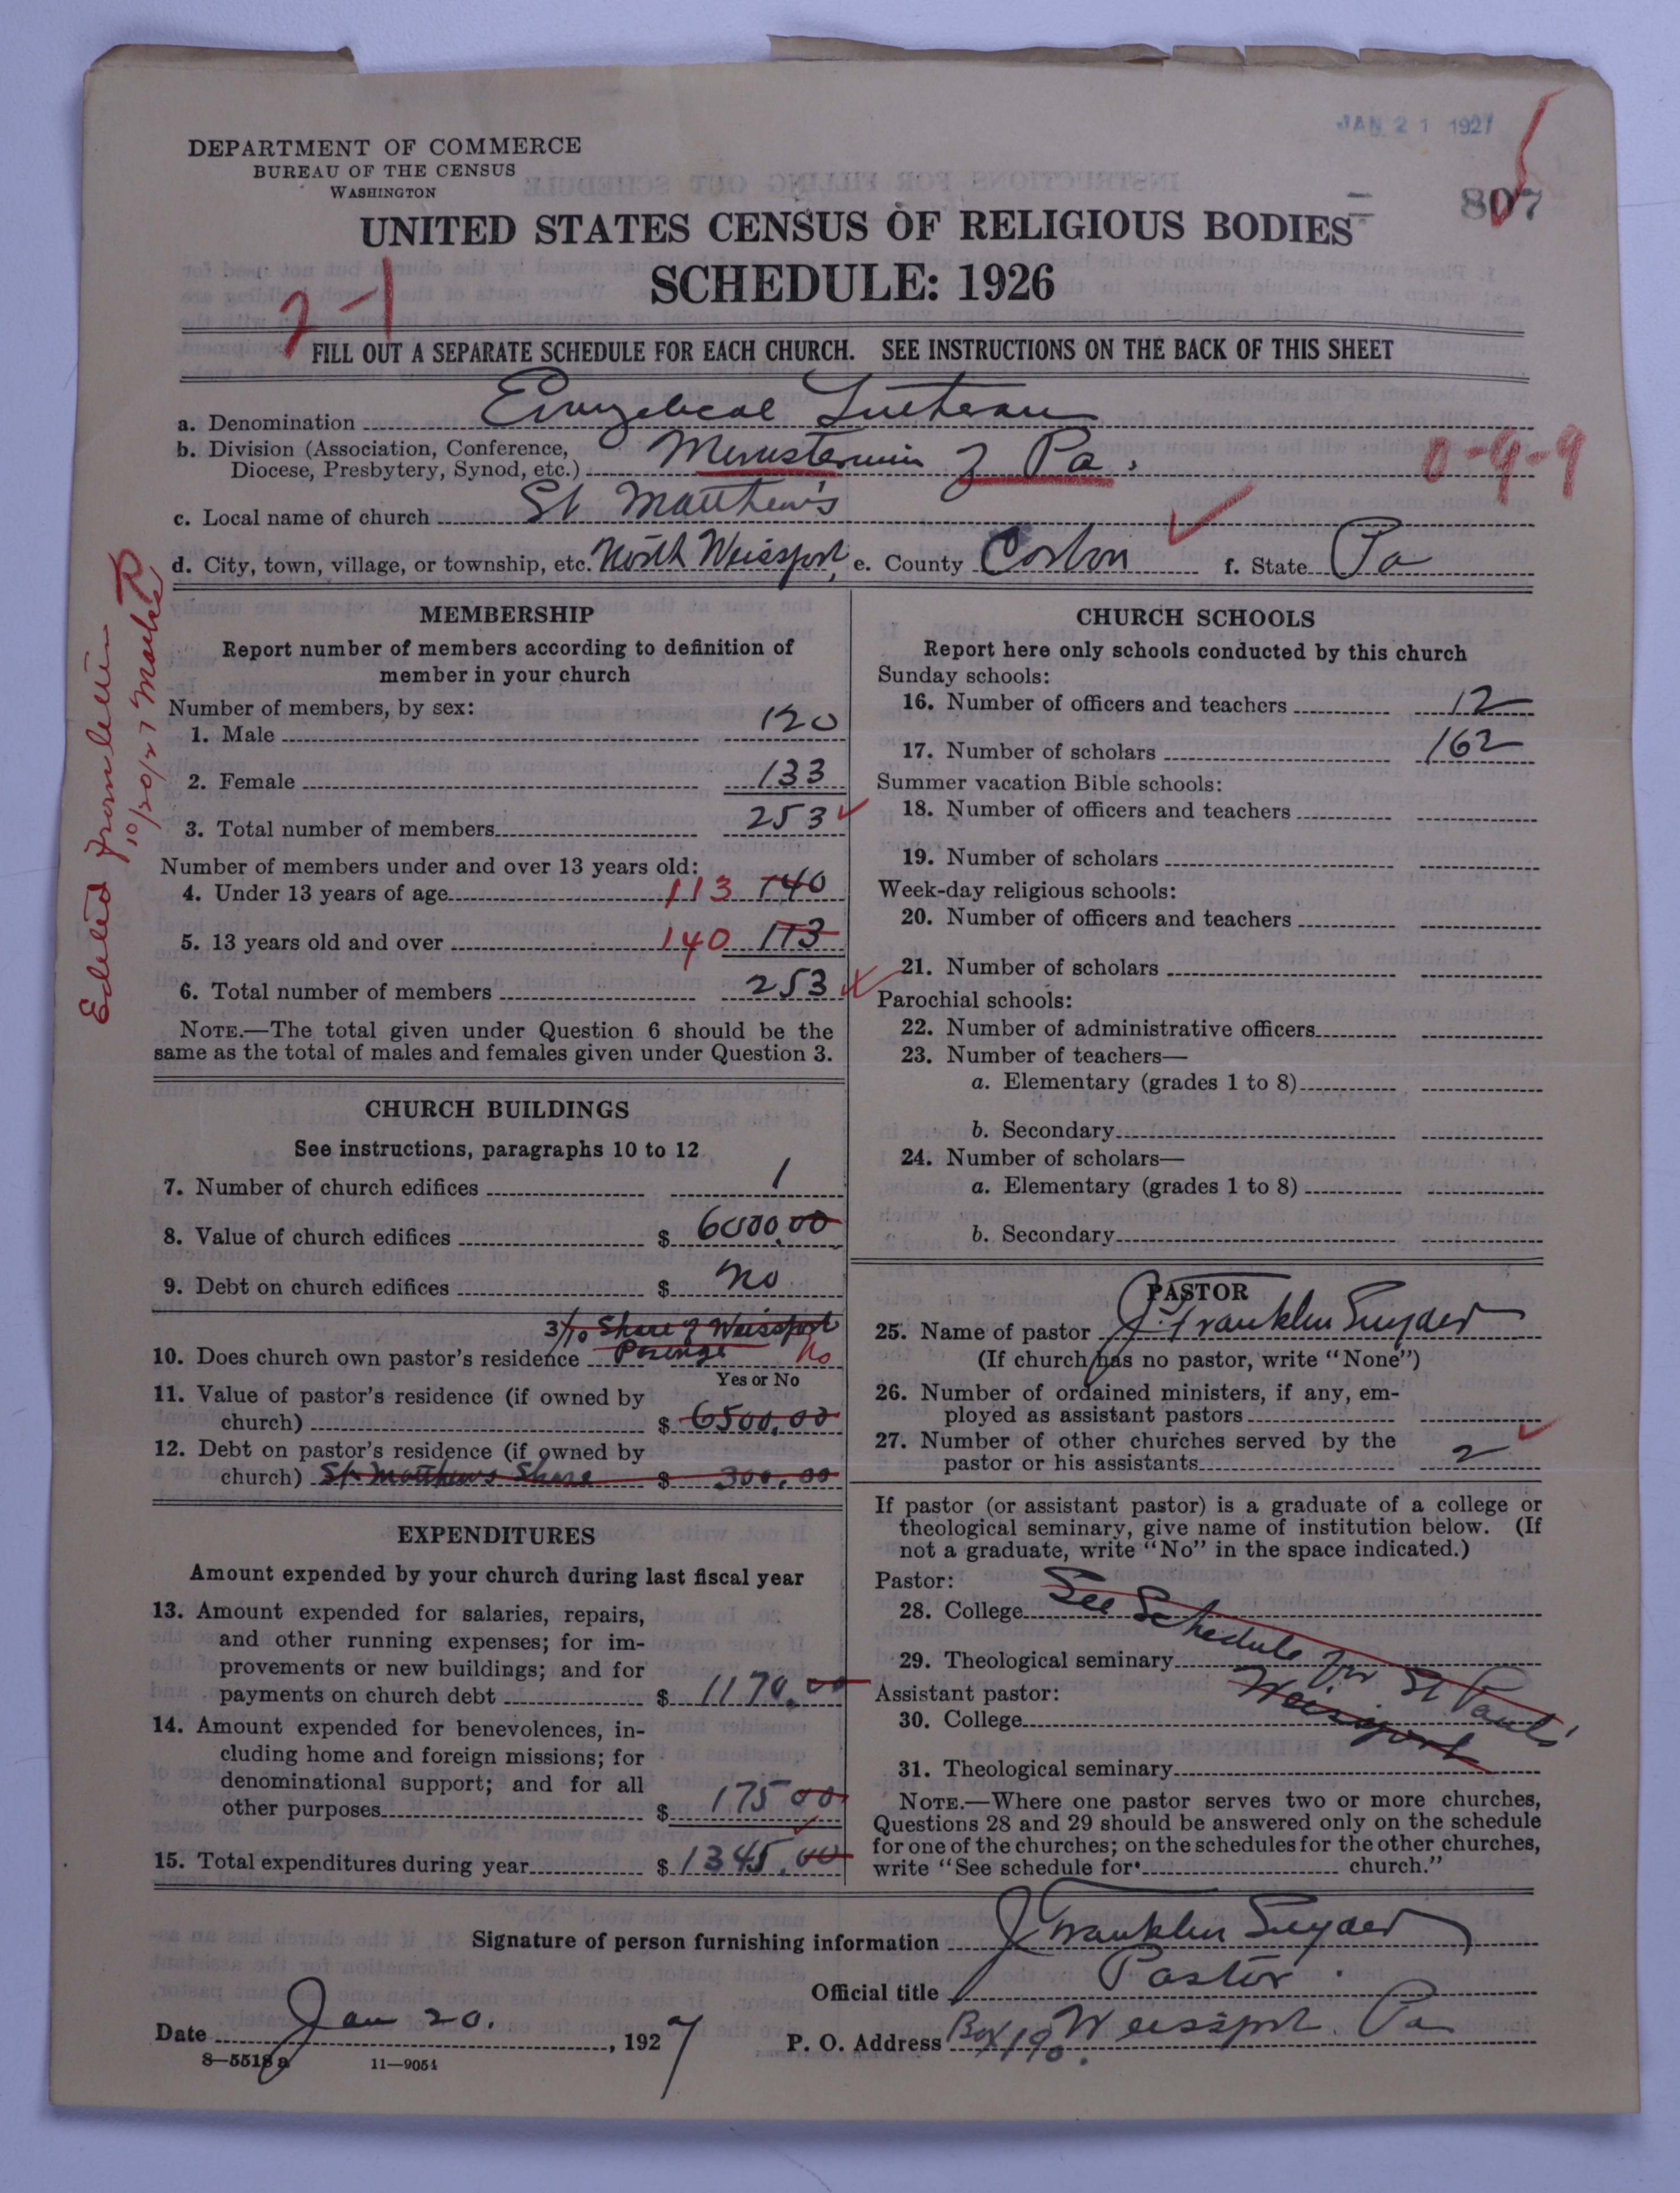 JAN 21 1927
DEPARTMENT OF COMMERCE
BUREAU OF THE CENSUS
WASHINGTON
807
UNITED STATES CENSUS OF RELIGIOUS BODIES
SCHEDULE: 1926
2-1
FILL OUT A SEPARATE SCHEDULE FOR EACH CHURCH. SEE INSTRUCTIONS ON THE BACK OF THIS SHEET
a. Denomination Evangelical Lutheran
b. Division (Association, Conference,
Diocese, Presbytery, Synod, etc.) Ministerium of Pa. 0-9-9
c. Local name of church St Matthew's
d. City, town, village, or township, etc. North Weissport, e. County Carbon f. State Pa
Edited from letter
10/20/27
MEMBERSHIP
Report number of members according to definition of
member in your church
Number of members, by sex:
1. Male 120
2. Female 133
3. Total number of members 253
Number of members under and over 13 years old:
4. Under 13 years of age 113 140
5. 13 years old and over 140 113
6. Total number of members 253
NOTE.—The total given under Question 6 should be the
same as the total of males and females given under Question 3.
CHURCH BUILDINGS
See instructions, paragraphs 10 to 12
7. Number of church edifices 1
8. Value of church edifices $ 6000.00
9. Debt on church edifices $ no
3/10 Share of Weissport
10. Does church own pastor's residence Parsonage No
Yes or No
11. Value of pastor's residence (if owned by
church) $ 6500.00
12. Debt on pastor's residence (if owned by
church) St. Matthews Share $ 300.00
EXPENDITURES
Amount expended by your church during last fiscal year
13. Amount expended for salaries, repairs,
and other running expenses; for im-
provements or new buildings; and for
payments on church debt $ 1170.00
14. Amount expended for benevolences, in-
cluding home and foreign missions; for
denominational support; and for all
other purposes $ 175 00
15. Total expenditures during year $ 1345.00
CHURCH SCHOOLS
Report here only schools conducted by this church
Sunday schools:
16. Number of officers and teachers 12
17. Number of scholars 162
Summer vacation Bible schools:
18. Number of officers and teachers
19. Number of scholars
Week-day religious schools:
20. Number of officers and teachers
21. Number of scholars
Parochial schools:
22. Number of administrative officers
23. Number of teachers—
a. Elementary (grades 1 to 8)
b. Secondary
24. Number of scholars—
a. Elementary (grades 1 to 8)
b. Secondary
PASTOR
25. Name of pastor J. Franklin Snyder
(If church has no pastor, write "None")
26. Number of ordained ministers, if any, em-
ployed as assistant pastors
27. Number of other churches served by the
pastor or his assistants 2
If pastor (or assistant pastor) is a graduate of a college or
theological seminary, give name of institution below. (If
not a graduate, write "No" in the space indicated.)
Pastor:
28. College See Schedule for St Paul's
29. Theological seminary Weissport
Assistant pastor:
30. College
31. Theological seminary
NOTE.—Where one pastor serves two or more churches,
Questions 28 and 29 should be answered only on the schedule
for one of the churches; on the schedules for the other churches,
write "See schedule for church."
Signature of person furnishing information J Franklin Snyder
Official title Pastor.
Date Jan 20. , 1927 P. O. Address Box 190. Weissport. Pa
8—5518 a 11—9054